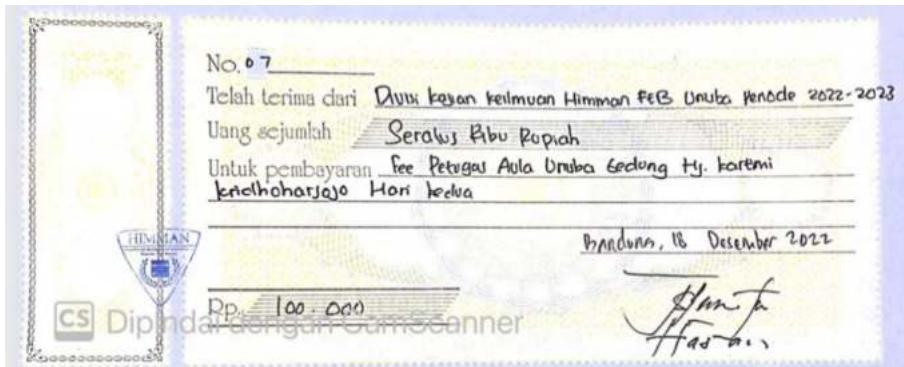 No. 07
Telah terima dari Divisi kajian keilmuan Himman FEB Unuba Periode 2022-2023
Uang sejumlah Seratus Ribu Rupiah
Untuk pembayaran fee Petugas Aula Unuba Gedung Hj. kartemi
Hari kedua
Bandung, 18 Desember 2022
HIMMAN
Rp. 100.000
CS Dipindai dengan CamScanner